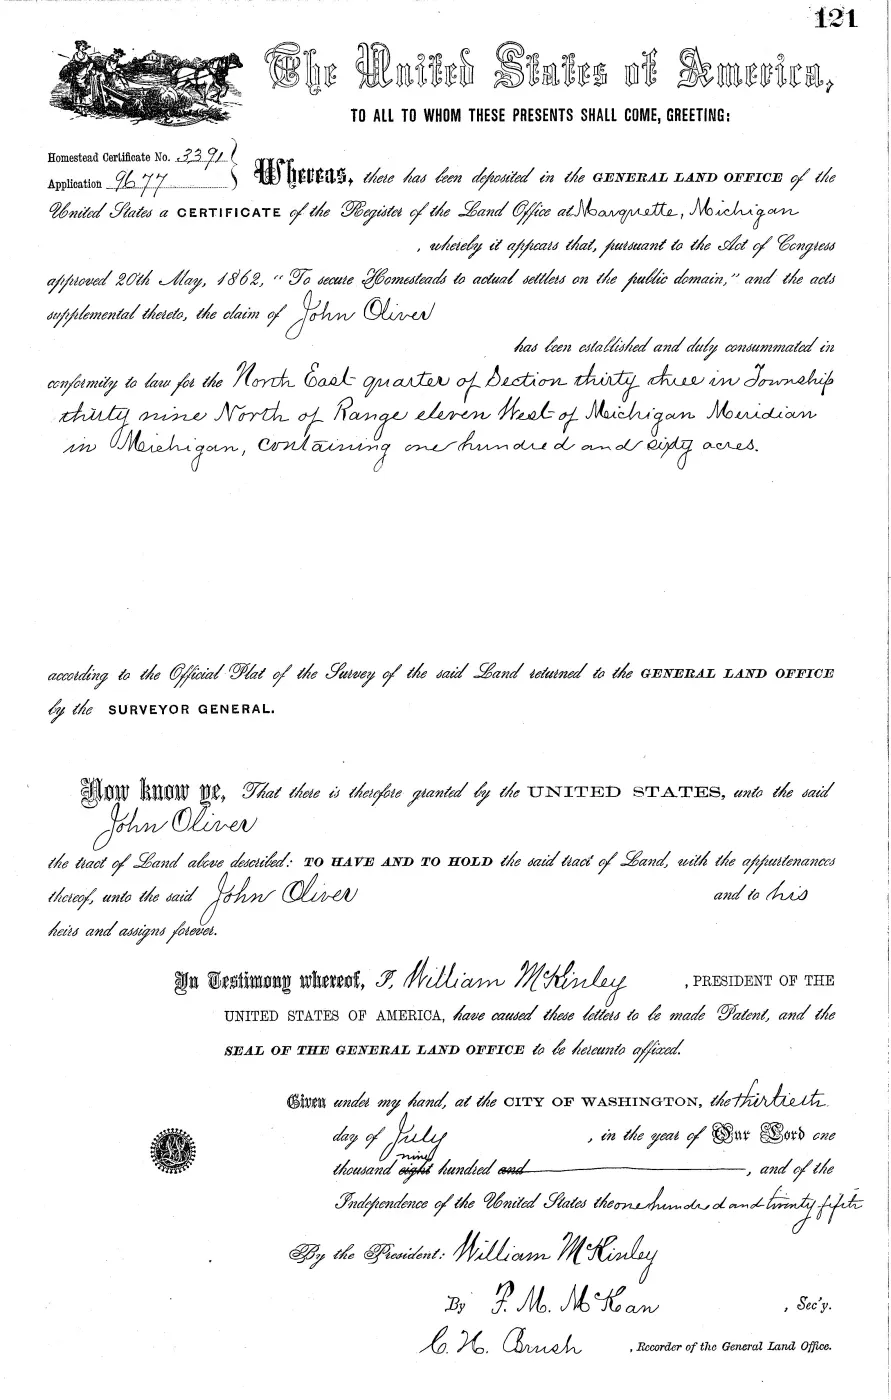 121
The United States of America,
TO ALL TO WHOM THESE PRESENTS SHALL COME, GREETING:
Homestead Certificate No. 3391
Application 9677
Whereas, there has been deposited in the GENERAL LAND OFFICE of the
United States a CERTIFICATE of the Register of the Land Office at Marquette, Michigan
, whereby it appears that, pursuant to the Act of Congress
approved 20th May, 1862, "To secure Homesteads to actual settlers on the public domain," and the acts
supplemental thereto, the claim of John Oliver
has been established and duly consummated in
conformity to law for the North East quarter of Section thirty three in Township
thirty nine North of Range eleven West of Michigan Meridian
in Michigan, containing one hundred and sixty acres.
according to the Official Plat of the Survey of the said Land returned to the GENERAL LAND OFFICE
by the SURVEYOR GENERAL.
Now know ye, That there is therefore granted by the UNITED STATES, unto the said
John Oliver
the tract of Land above described: TO HAVE AND TO HOLD the said tract of Land, with the appurtenances
thereof, unto the said John Oliver and to his
heirs and assigns forever.
In Testimony whereof, I, William McKinley, PRESIDENT OF THE
UNITED STATES OF AMERICA, have caused these letters to be made Patent, and the
SEAL OF THE GENERAL LAND OFFICE to be hereunto affixed.
Given under my hand, at the CITY OF WASHINGTON, the thirtieth
day of July, in the year of Our Lord one
nine
thousand eight hundred and, and of the
Independence of the United States the one hundred and twenty fifth
By the President: William McKinley
By F. M. McKean, Sec'y.
C. H. Brush, Recorder of the General Land Office.